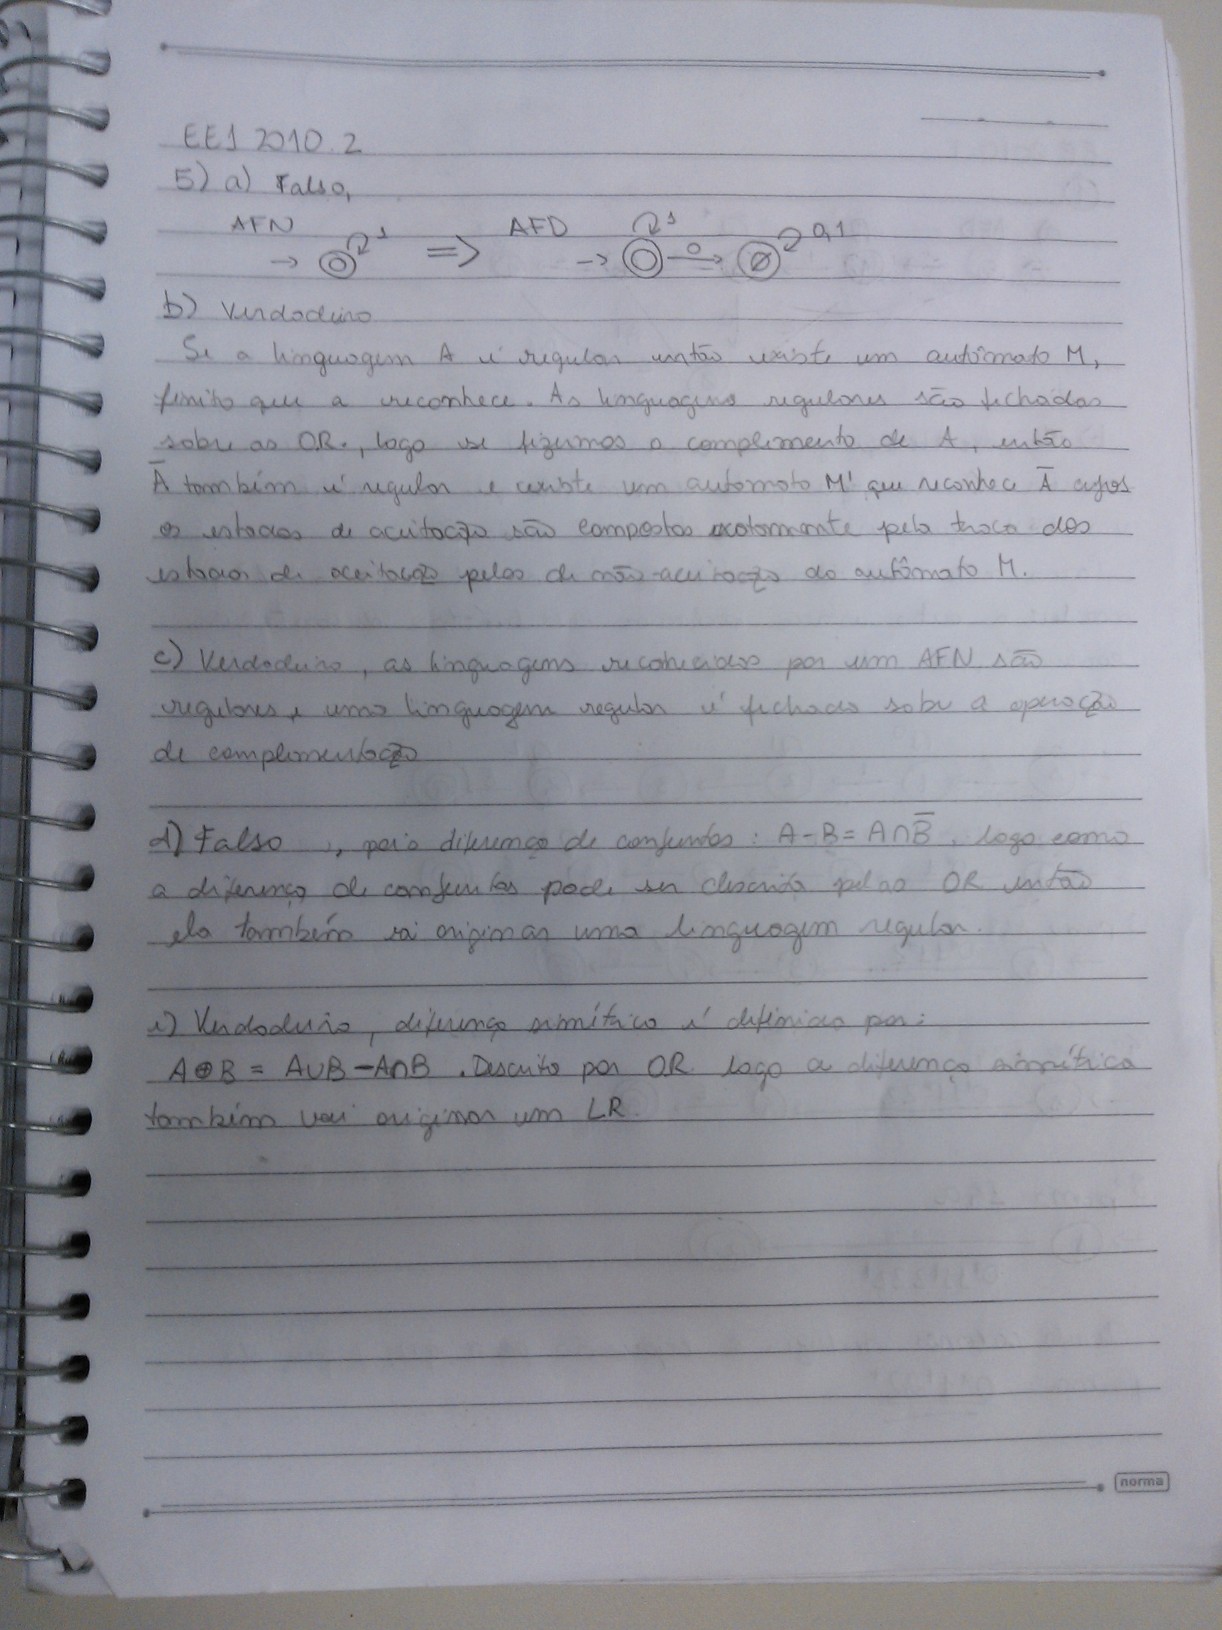 EE1 2010.2
5) a) Falso,
AFN
1
=>
AFD
1
0
Ø
0,1
b) Verdadeiro
Se a linguagem A é regular então existe um autômato M,
finito que a reconhece. As linguagens regulares são fechadas
sobre as OR., logo se fizermos o complemento de A, então
A̅ também é regular e existe um automato M' que reconhece A̅ cujos
os estados de aceitação são compostos exatamente pela troca dos
estados de aceitação pelos de não-aceitação do autômato M.
c) Verdadeiro, as linguagens reconhecidas por um AFN são
regulares e uma linguagem regular é fechada sobre a operação
de complementação
d) Falso , pois diferença de conjuntos: A-B = A∩B̅, logo como
a diferença de conjuntos pode ser descrita pelas OR então
ela também vai originar uma linguagem regular.
e) Verdadeiro, diferença simétrica é definida por:
A⊕B = A∪B - A∩B . Descrito por OR logo a diferença simétrica
também vai originar um LR
norma